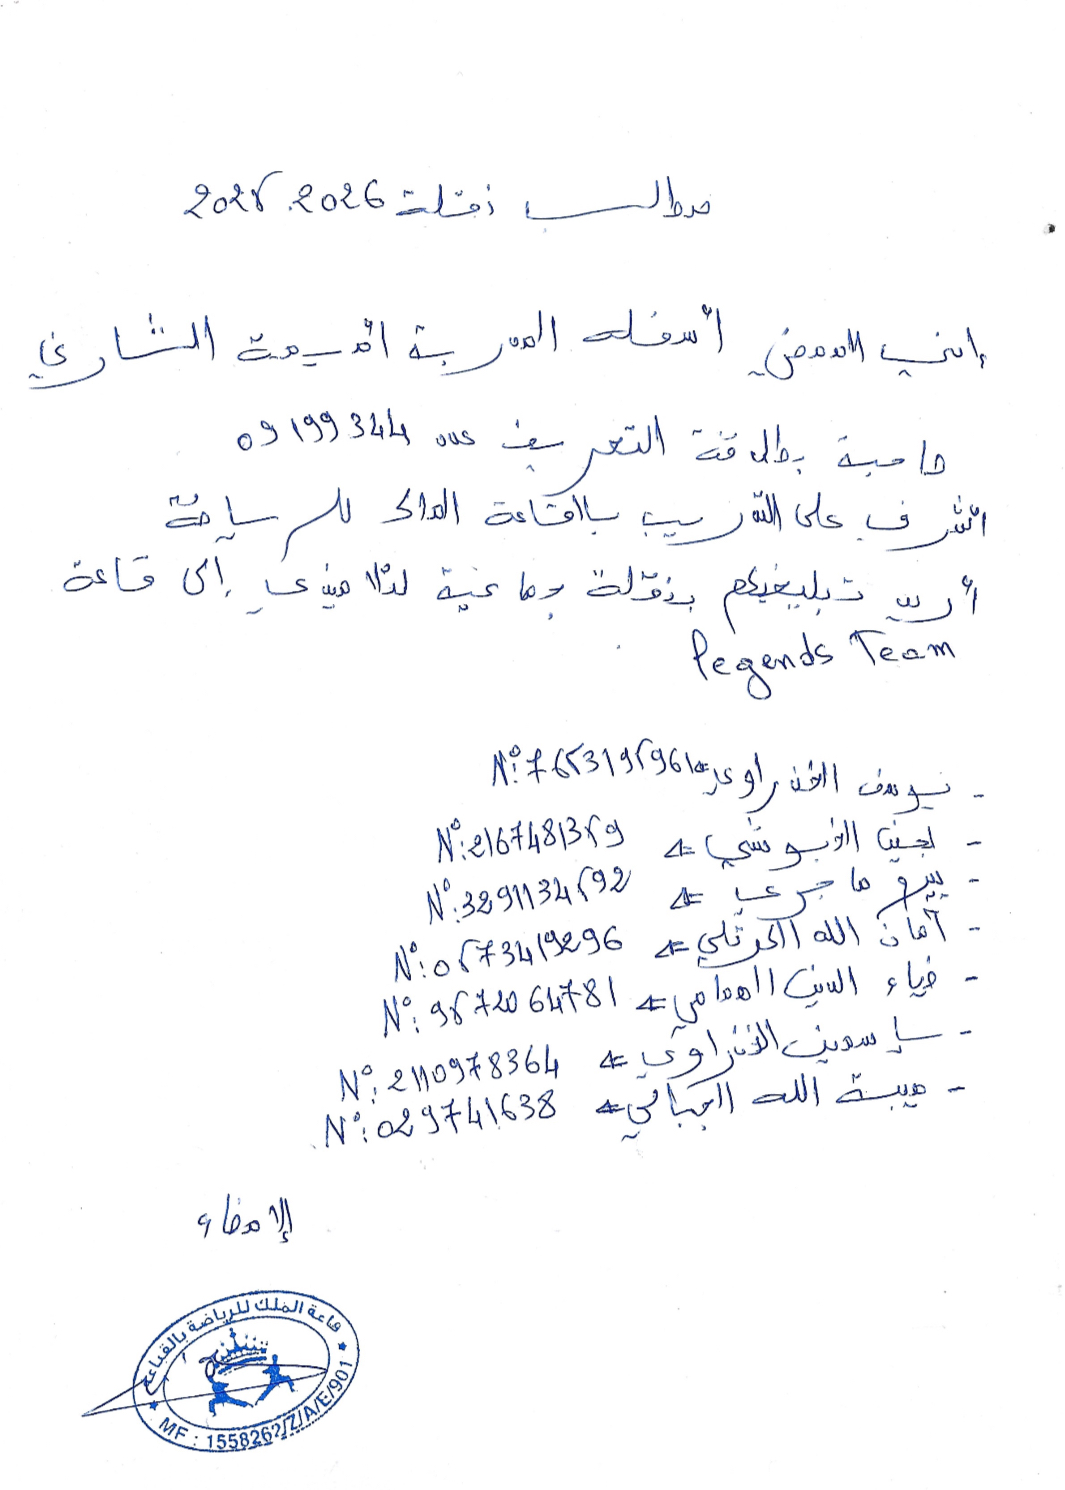 مطلب نقلة 2026 2025
إنني الممضي أسفله المدربة أميمة الشارني
صاحبة بطاقة التعريف عدد 09199344
أشرف على التدريب بالقاعة الملك للرياضة
أريد تبليغكم بنقلة جماعية لتلاميذي إلى قاعة
Legends Team
- يوسف الخضراوي N°: 7653195961
- لجين العبوشي N°: 2167481359
- بيرم ماجري N°: 3291134592
- آمان الله الحرثلي N°: 0573419296
- ضياء الدين الهمامي N°: 9572064781
- ياسمين الخضراوي N°: 2110978364
- هيبة الله الجبالي N°: 029741638
الإمضاء
قاعة الملك للرياضة بالقباعة
MF : 1558262/Z/A/E/901